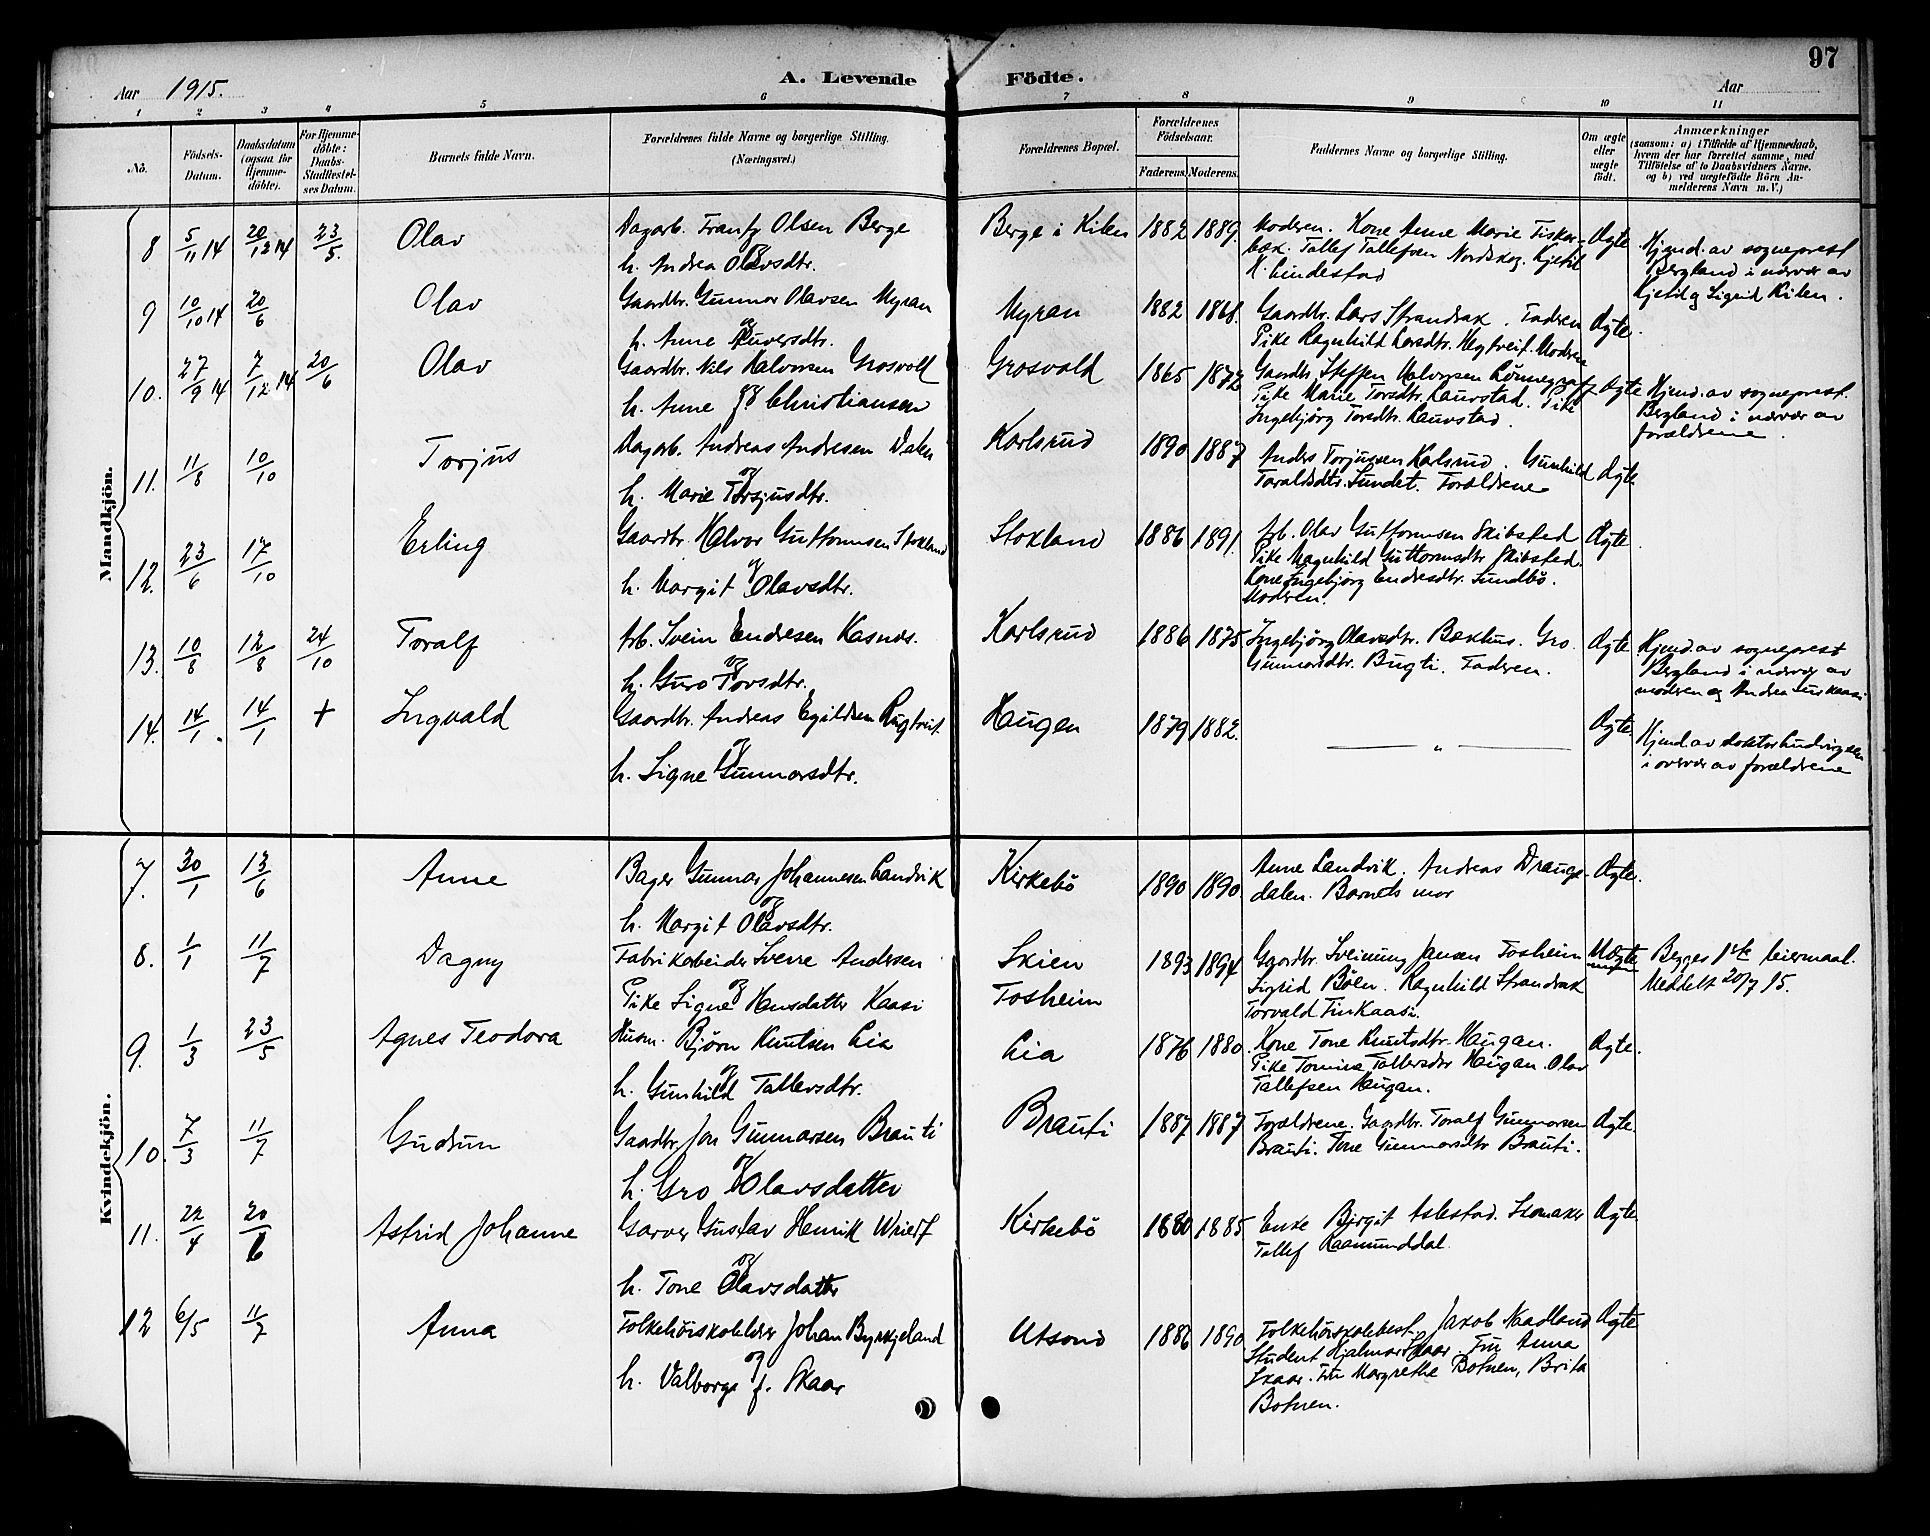 97
Aar 1915.
A. Levende Födte.
Aar
1 2 3 4 5 6 7 8 9 10 11
No.
Födsels-Datum.
Daabsdatum (ogsaa for Hjemme-döbte).
For Hjemme-döbte: Daabs-Stadfæstel-ses Datum.
Barnets fulde Navn.
Forældrenes fulde Navne og borgerlige Stilling. (Næringsvei.)
Forældrenes Bopæl.
Forældrenes Födselsaar.
Faderens. Moderens.
Faddernes Navne og borgerlige Stilling.
Om ægte eller uægte födt.
Anmærkninger
(saasom: a) i Tilfælde af Hjemmedaab, hvem der har forrettet samme, med Tilföielse af to Daabsvidners Navne, og b) ved uægtefödte Börn An-melderens Navn m. V.)
Mandkjön.
8 5/11 14 20/12 14 23/5. Olav
Dagarb. Olsen Berge
og
h. Andrea Olavsdtr.
Berge i Kilen 1882 1889.
Moderen. Kone Anne Marie Fisker-
bæk. Tallef Tallefsen Nordskog. Kjetil
K. Lindestad
Ægte
Hjemd. av sogneprest
Bergland i nærvær av
Kjetil og Sigrid Kilen.
9 10/10 14 20/6 Olav
Gaardbr. Gunnar Olavsen Myran
og
h. Anne
Myran 1882 1868.
Gaardbr. Lars Strandrak. Faderen
Pike Ragnhild Larsdtr. Moderen
Ægte.
10. 27/9 14 7/12 14 20/6 Olav
Gaardbr. Nils Halvorsen Grosvold
h. Anne Christiansen
Grosvold 1865 1872
Gaardbr. Steffen Halvorsen Lönnegrav
Pike Marie Torsdtr. Laurstad. Pike
Ingebjörg Torsdtr. Laurstad.
Ægte
Hjemd. av sogneprest
Bergland i nærvær av
forældrene.
11. 11/8 10/10 Torjus
Dagarb. Andreas Andresen
og
h. Marie Torjusdtr.
Karlsrud 1890 1887
Anders Torjussen Karlsrud. Gunhild
Taraldsdtr. Sundet. Forældrene
Ægte.
12. 23/6 17/10 Erling
Gaardbr. Halvor Guttormsen Stokland
og
h. Margit Olavsdtr.
Stokland 1886 1891.
Arb. Olav Guttormsen Skibsted
Pike Magnhild Guttormsdtr. Skibsted.
Kone Ingebjörg Endresdtr. Sundbö.
Moderen.
Ægte.
13. 10/8 12/8 24/10 Toralf
Arb. Svein Endresen Kasnes.
og
h. Guro Torsdtr.
Karlsrud 1886 1875.
Ingebjörg Olavsdtr. Bækhus. Gro
Gunnarsdtr. Bugti. Faderen.
Ægte.
Hjemd. av sogneprest
Bergland i nærvær av
moderen og Andrea
14. 14/1. 14/1 + Ingvald
Gaardbr. Andreas Egildsen Rugtveit.
og
h. Signe Gunnarsdtr.
Haugen 1879 1882.
— „ —
Ægte.
Hjemd av doktor Ludvigsen
i overvær av forældrene
Kvindekjön.
7. 30/1 13/6 Anne
Bager Gunnar Johannesen Landvik
og
h. Margit Olavsdtr.
Kirkebö 1890 1890.
Anne Landvik. Andreas Drange-
dalen. Barnets mor
Ægte.
8. 1/1 11/7 Dagny
Fabrikarbeider Sverre Andersen
og
Pike Signe Hansdatter Kaasi
Skien
Fosheim
1893 1894
Gaardbr. Sveinung Jansen Fosheim
Sigrid Böen. Ragnhild Strandrak
Torvald Finkaasi.
Uægte
Begges 1ste leiermaal.
Meddelt 20/7 15.
9. 1/3 23/5 Agnes Teodora
Husm. Björn Knutsen Lia
og
h. Gunhild Tallevsdtr.
Lia 1876 1880.
Kone Tone Knutsdtr. Haugan.
Pike Tomine Tallevsdtr Haugan. Olav
Tallefsen Haugan.
Ægte.
10. 7/3 11/7 Gudrun
Gaardbr. Jon Gunnarsen Brauti
og
h. Gro Olavsdatter
Brauti 1887 1887
Forældrene. Gaardbr. Toralf Gunnarsen
Brauti. Tone Gunnarsdtr Brauti.
Ægte.
11. 22/4 20/6 Astrid Johanne
Garver Gustav Henrik
og
h. Tone Olavsdatter
Kirkebö 1880 1885
Enke Birgit Aslestad. Skomaker
Tallef Raamunddal.
Ægte.
12 6/5 11/7 Anna
Folkehöiskolelærer Johan Byrkjeland
og
h. Valborg f. Skaar
Utsond 1886 1890
Folkehöiskolebest. Jakob Naadland
Student Hjalmar Skaar. Frk Anna
Skaar. Frk Margrethe Botnen, Brita
Botnen.
Ægte